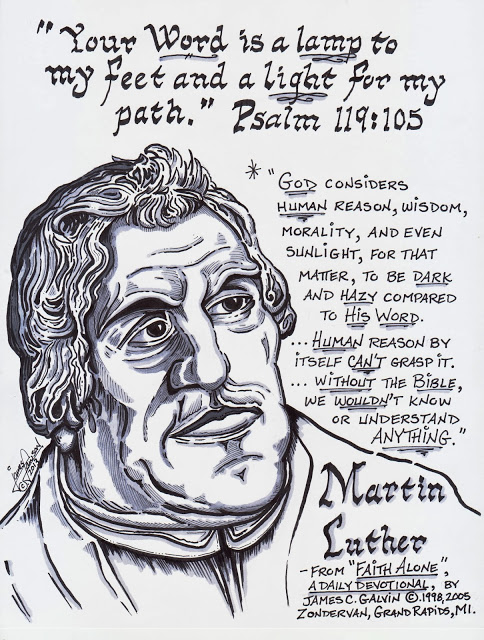 "Your Word is a lamp to
my feet and a light for my
path." Psalm 119:105
* "God considers
human reason, wisdom,
morality, and even
sunlight, for that
matter, to be dark
and hazy compared
to His Word.
...Human reason by
itself can't grasp it.
... without the Bible,
we wouldn't know
or understand
anything."
Martin
Luther
- from "Faith Alone",
a daily devotional, by
James C. Galvin ©.1998, 2005
Zondervan, Grand Rapids, MI.